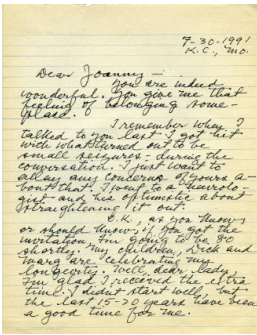 7-30-1991
K.C., Mo.
Dear Joanny -
You are indeed
wonderful. You give me that
feeling of belonging some-
place.
I remember when I
talked to you last I got hit
with what turned out to be
small seizures - during the
conversation. I just want to
allay any concerns of yours a-
bout that. I went to a neurolo-
gist and his optimistic about
straightening it out.
E.K., as you know
or should know, if you got the
invitation I'm going to be 80
shortly. My children, Dick and
Marg are celebrating my
longevity. Well, dear lady,
I'm glad I received the extra
time. I didn't start well, but
the last 15-20 years have been
a good time for me.